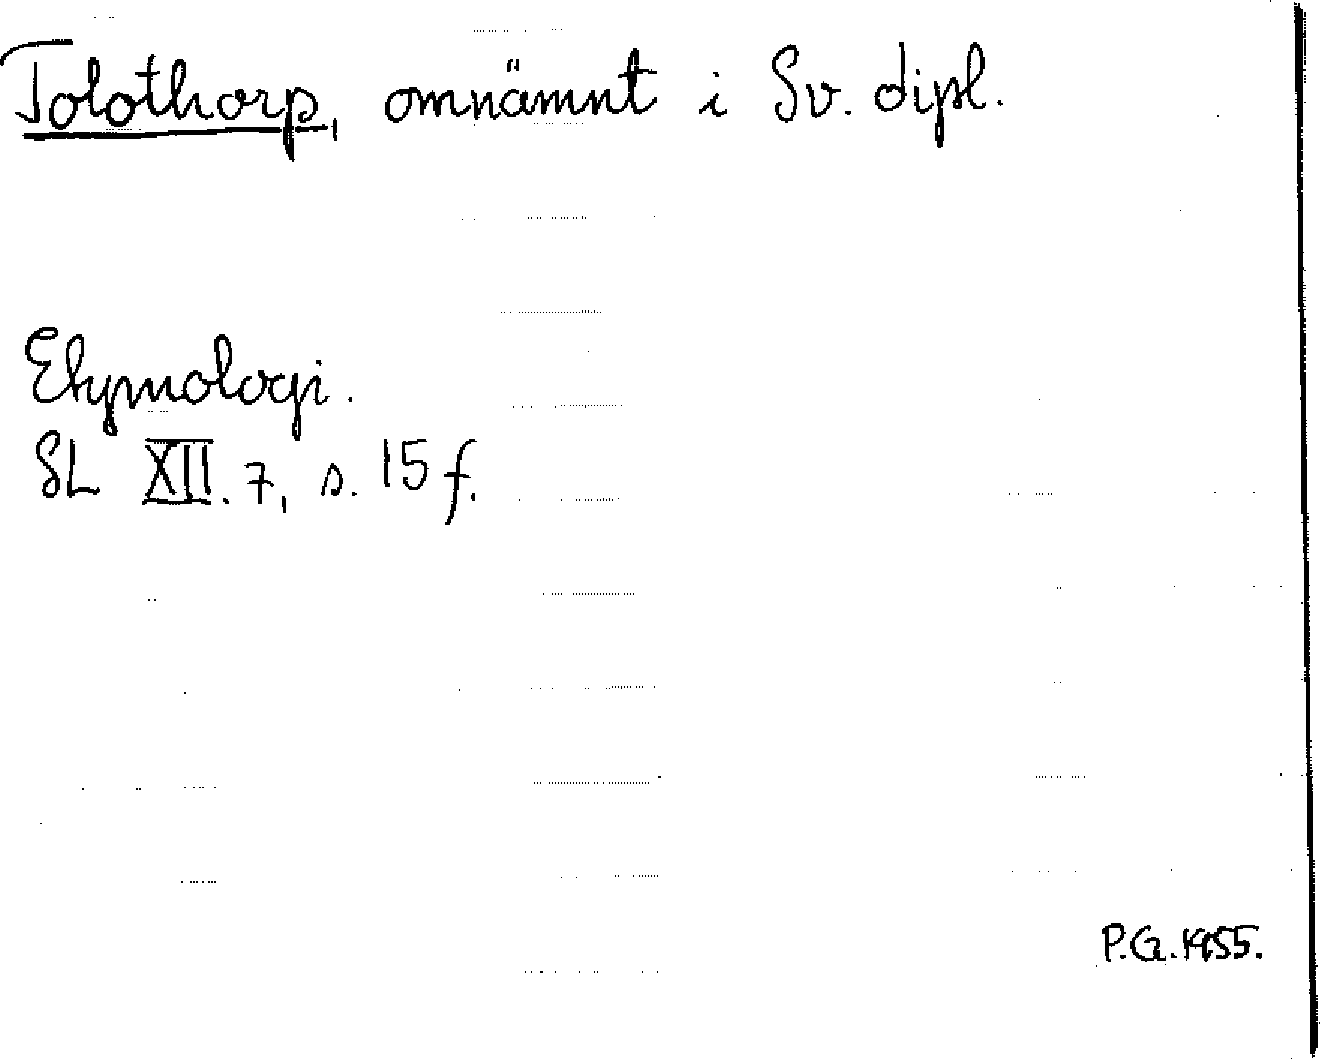 Tolothorp, omnämnt i Sv. dipl.
Etymologi.
SL XII. 7, s. 15 f.
P.G. 1955.